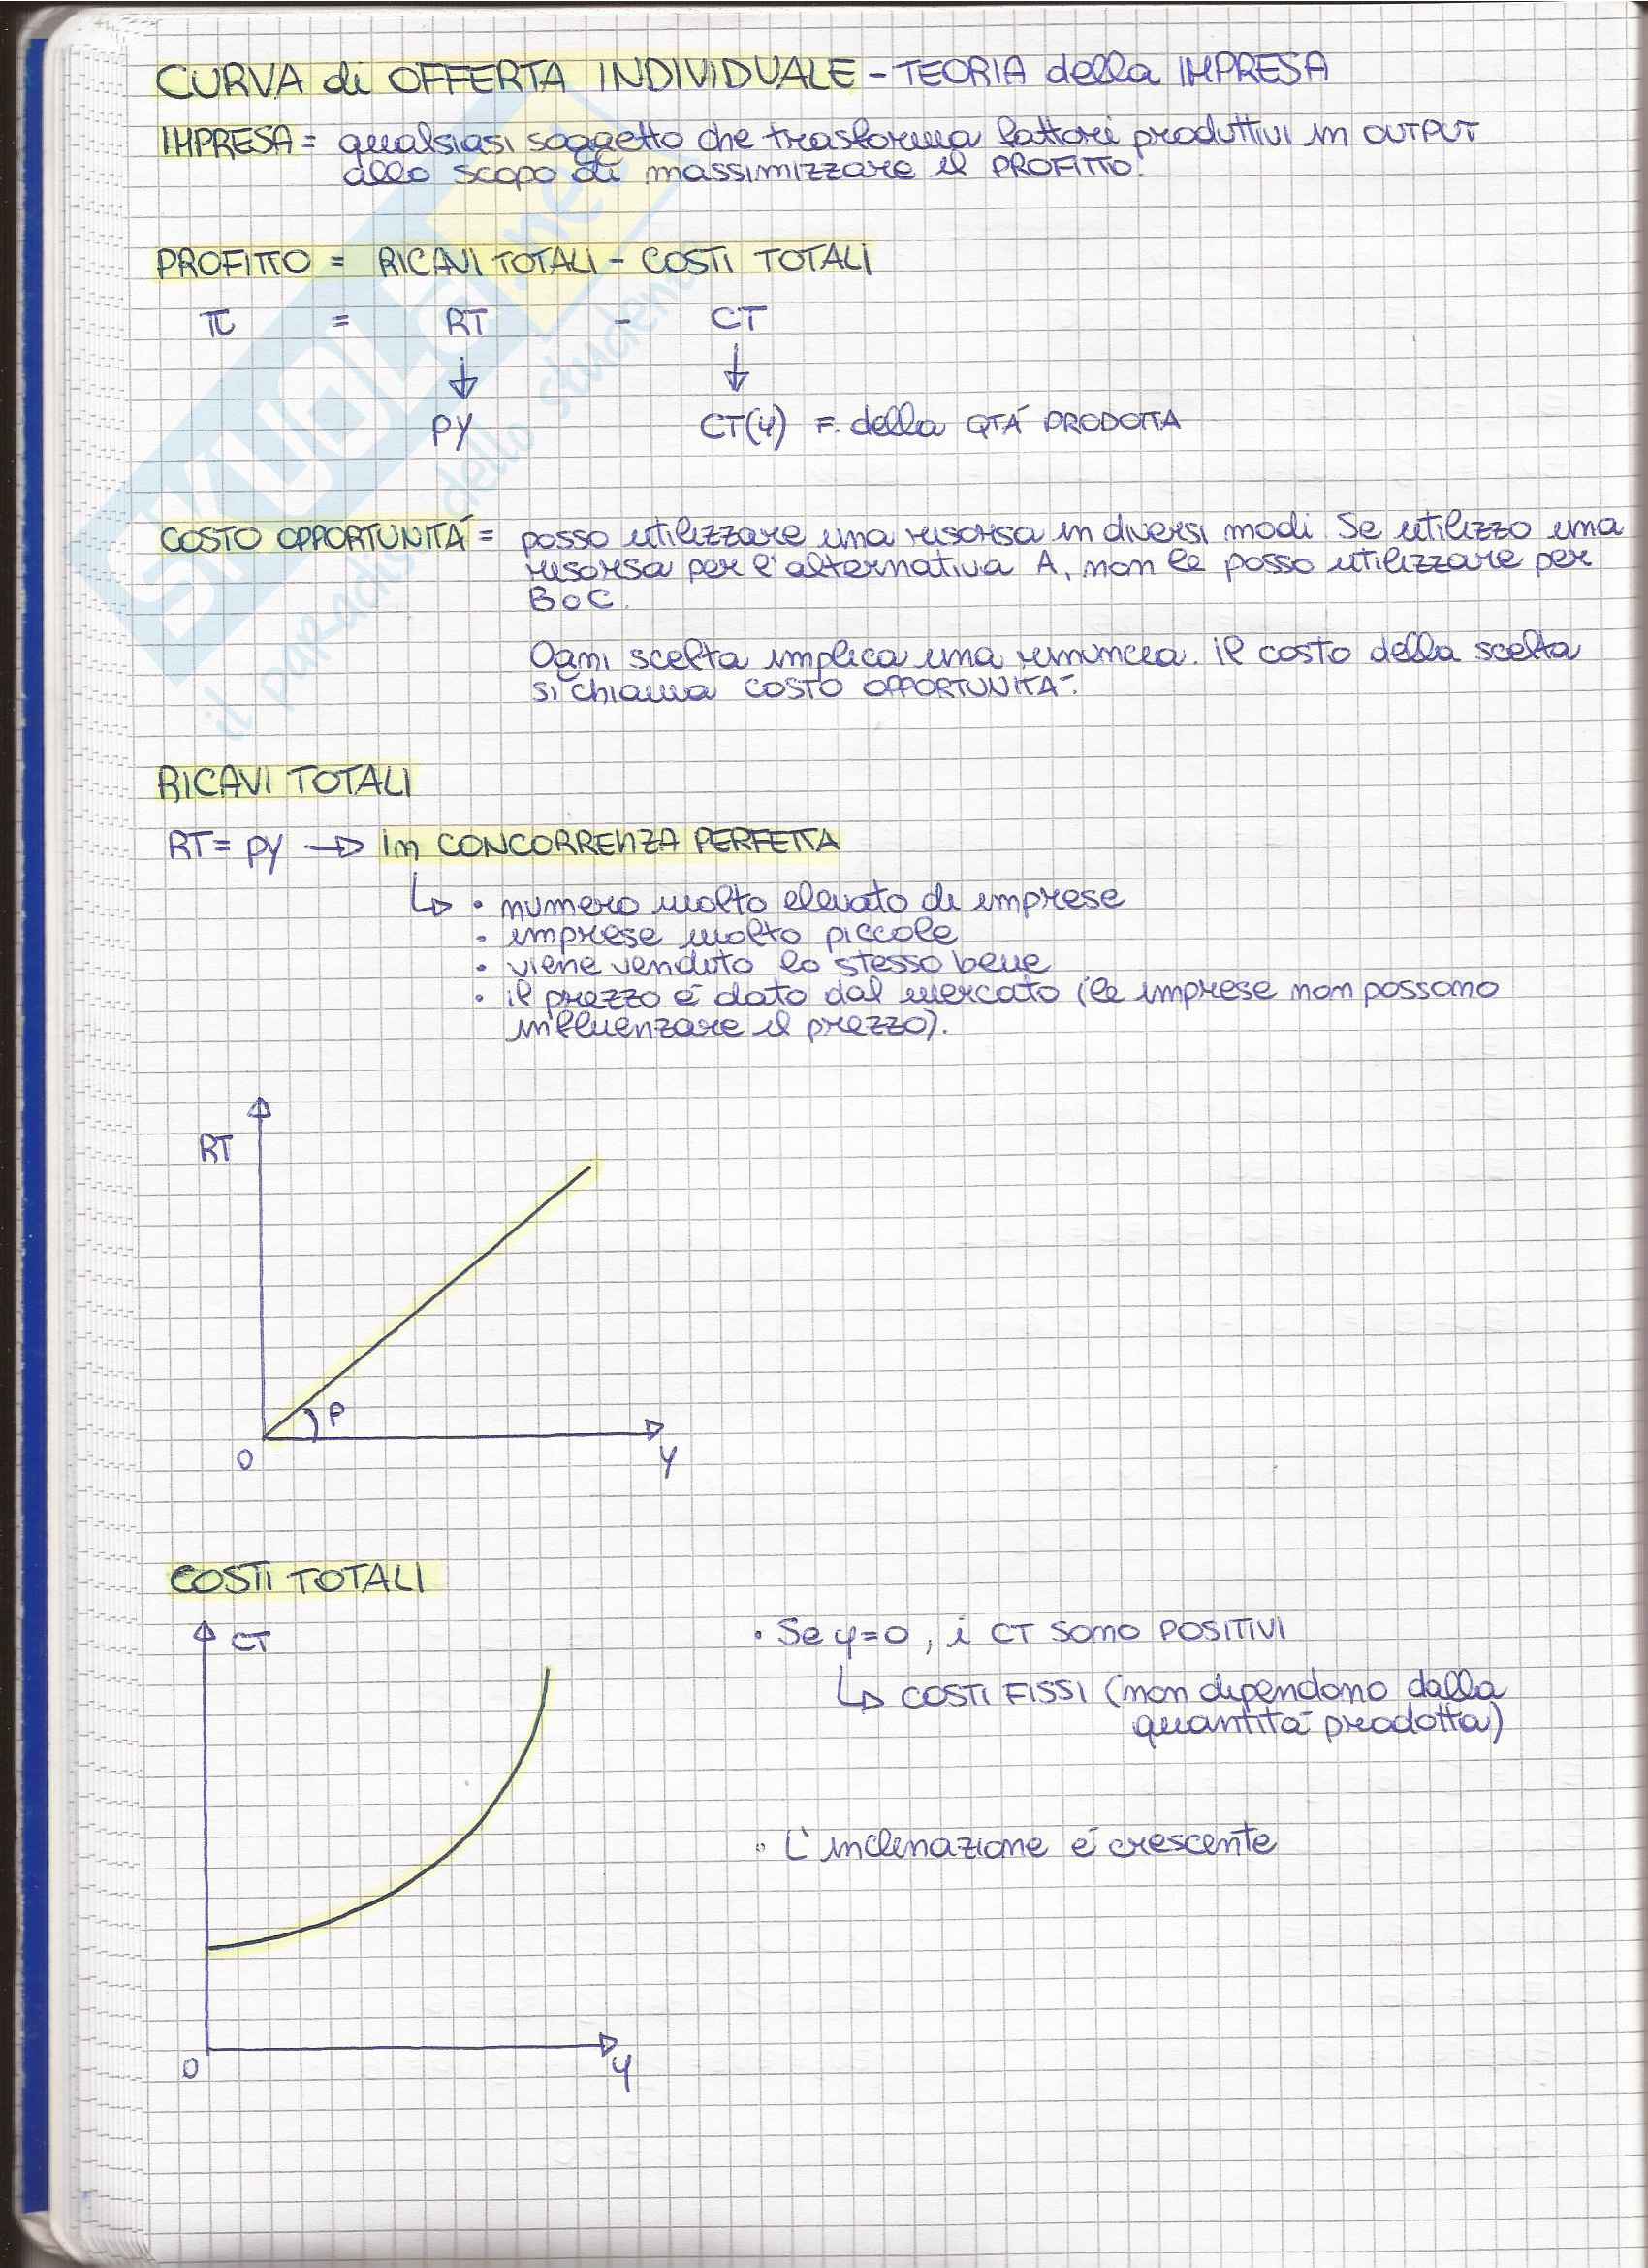 CURVA di OFFERTA INDIVIDUALE - TEORIA della IMPRESA
IMPRESA = qualsiasi soggetto che trasforma fattori produttivi in OUTPUT
allo scopo di massimizzare il PROFITTO.
PROFITTO = RICAVI TOTALI - COSTI TOTALI
π = RT - CT
py CT(y) F. della QTÀ PRODOTTA
COSTO OPPORTUNITÀ = posso utilizzare una risorsa in diversi modi. Se utilizzo una
risorsa per l'alternativa A, non le posso utilizzare per
B o C.
Ogni scelta implica una rinuncia. Il costo della scelta
si chiama COSTO OPPORTUNITÀ.
RICAVI TOTALI
RT = py → in CONCORRENZA PERFETTA
↳ • numero molto elevato di imprese
• imprese molto piccole
• viene venduto lo stesso bene
• il prezzo è dato dal mercato (le imprese non possono
influenzare il prezzo).
RT
P
0
y
COSTI TOTALI
CT
• Se y=0, i CT sono POSITIVI
↳ COSTI FISSI (non dipendono dalla
quantità prodotta)
• L'inclinazione è crescente
0
y
SKUOLA.net
il paradiso dello studente